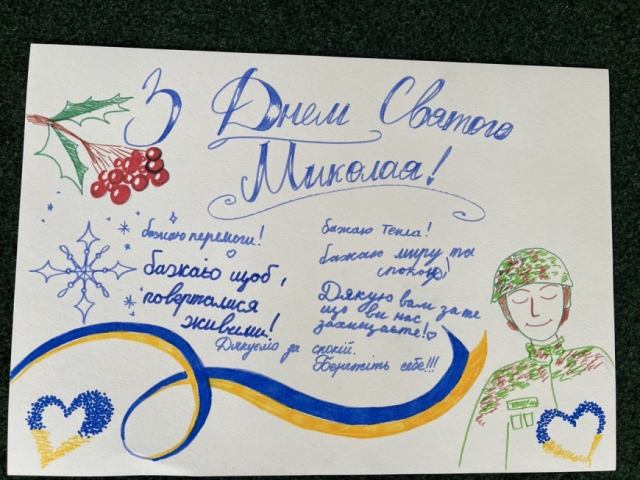 З Днем Святого
Миколая!
бажаю перемоги!
бажаю щоб,
поверталися
живими!
Дякуємо за спокій.
бажаю тепла!
бажаю миру та
спокою!
Дякую вам за те
що ви нас
захищаєте!
Бережіть себе!!!